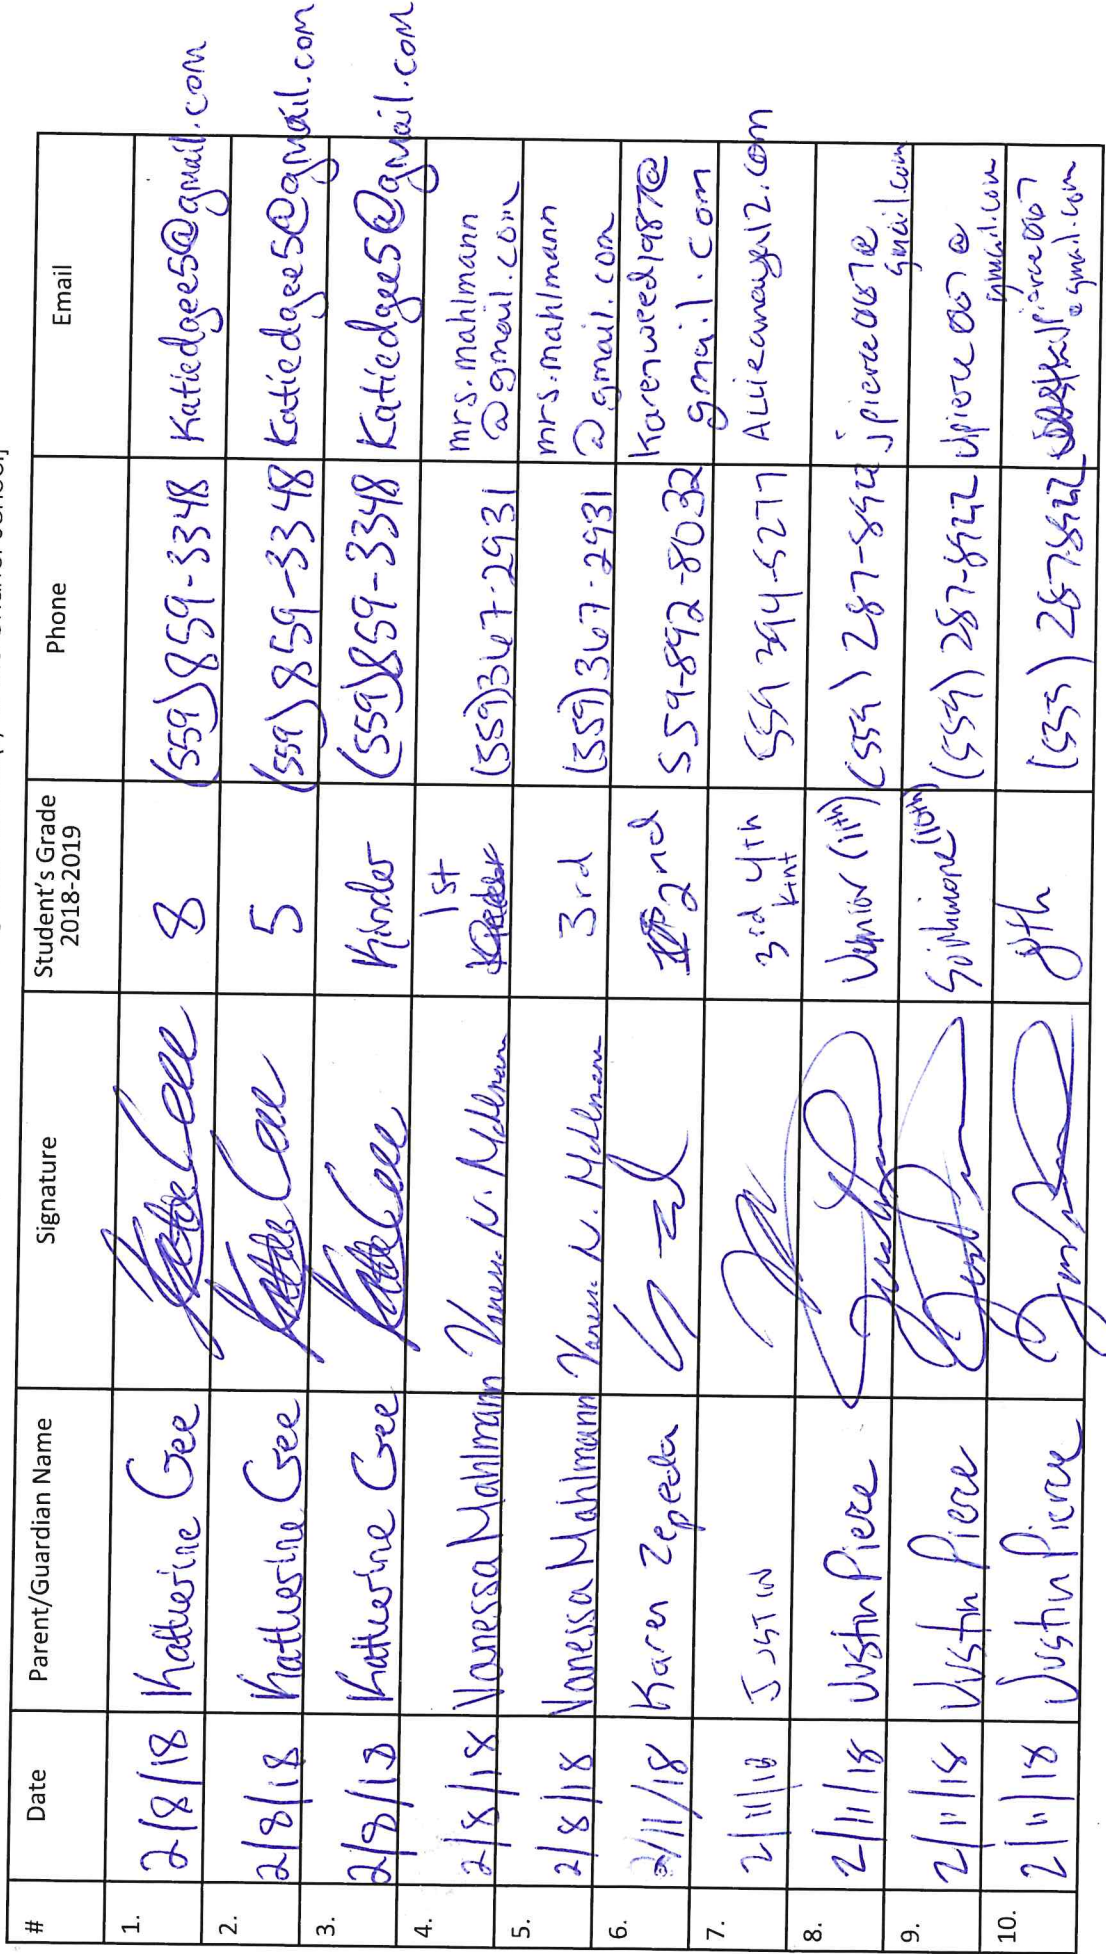 # Date Parent/Guardian Name Signature Student's Grade Phone Email
2018-2019
1. 2/8/18 Katherine Gee 8 (559) 859-3348 Katiedgee5@gmail.com
2. 2/8/18 Katherine Gee 5 (559) 859-3348 Katiedgee5@gmail.com
3. 2/8/18 Katherine Gee Kinder (559) 859-3348 Katiedgee5@gmail.com
4. 2/8/18 Vanessa Mahlmann 1st (559) 367-2931 mrs.mahlmann
@gmail.com
5. 2/8/18 Vanessa Mahlmann 3rd (559) 367-2931 mrs.mahlmann
@gmail.com
6. 2/11/18 Karen Zepeda 2nd 559-892-8032 Karenweed1987@
gmail.com
7. 2/11/18 JUSTIN 3rd 4th 559 394-5277
Kint
8. 2/11/18 Justin Pierce Junior (11th) (559) 287-8922 jpierce007@
gmail.com
9. 2/11/18 Justin Pierce (10th) (559) 287-8922 jpierce007@
gmail.com
10. 2/11/18 Justin Pierce 8th (559) 287-8922
@gmail.com